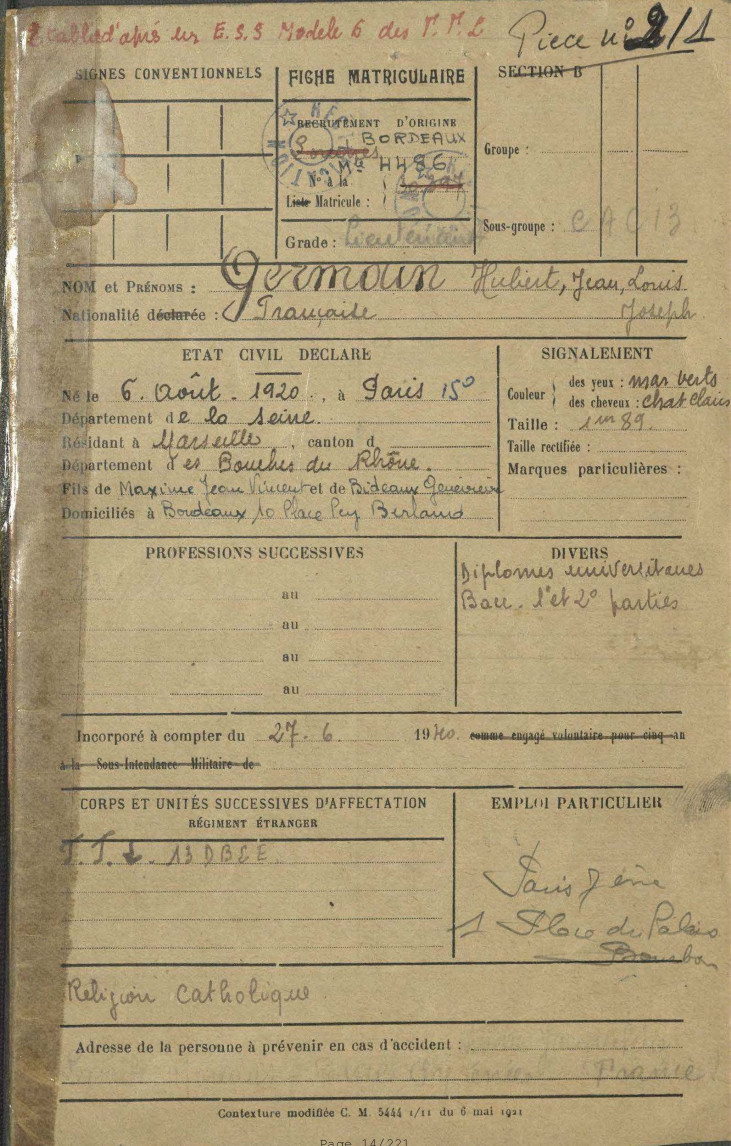 Etabli d'après un E.S.S Modele 6 des T.T.L
Piece n° 2/1
SIGNES CONVENTIONNELS
FICHE MATRICULAIRE
SECTION B
RECRUTEMENT D'ORIGINE
BORDEAUX
Londres
Mle 4486
N° à la
Liste Matricule :
Grade : Lieutenant
Groupe :
Sous-groupe : CAC13
NOM et PRÉNOMS : Germain Hubert, Jean, Louis
Joseph
Nationalité déclarée : Française
ETAT CIVIL DECLARE
Né le 6. Août. 1920., à Paris 15°
Département de la Seine.
Résidant à Marseille, canton d
Département des Bouches du Rhône.
Fils de Maxime Jean Vincent et de Bideaux Geneviève
Domiciliés à Bordeaux 10 Place Pey Berland
SIGNALEMENT
Couleur
des yeux : mar verts
des cheveux : chat clairs
Taille : 1m 89.
Taille rectifiée :
Marques particulières :
PROFESSIONS SUCCESSIVES
au
au
au
au
DIVERS
Diplomes universitaires
Bacc. 1° et 2° parties
Incorporé à compter du 27. 6. 1940. comme engagé volontaire pour cinq an
à la Sous-Intendance Militaire de
CORPS ET UNITÉS SUCCESSIVES D'AFFECTATION
RÉGIMENT ÉTRANGER
T.T.L. 13 DBLE
EMPLOI PARTICULIER
Paris 7 ème
1 Place du Palais
Bourbon
Religion catholique
Adresse de la personne à prévenir en cas d'accident :
France
Contexture modifiée C. M. 5444 1/11 du 6 mai 1921
Page 14/221